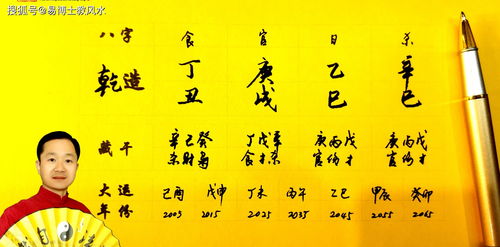 搜狐号@易博士教风水
八字 食 官 日 杀
乾造 丁 庚 乙 辛
丑 戌 巳 巳
藏干 辛己癸 丁戊辛 庚丙戊 庚丙戊
杀财枭 食才杀 官伤才 官伤才
大运 己酉 戊申 丁未 丙午 乙巳 甲辰 癸卯
年份 2005 2015 2025 2035 2045 2055 2065